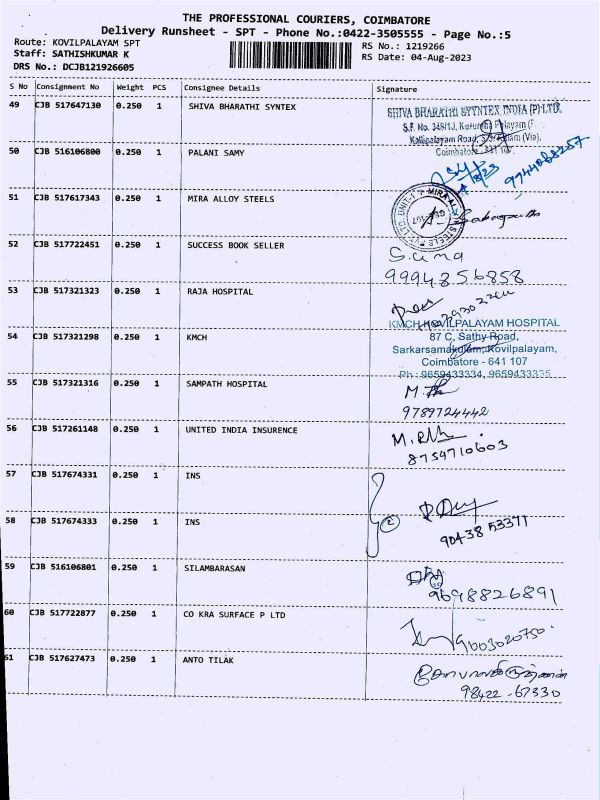 THE PROFESSIONAL COURIERS, COIMBATORE
Delivery Runsheet - SPT - Phone No.:0422-3505555 - Page No.:5
Route: KOVILPALAYAM SPT
Staff: SATHISHKUMAR K
DRS No.: DCJB121926605
RS No.: 1219266
RS Date: 04-Aug-2023
S No Consignment No Weight PCS Consignee Details Signature
49 CJB 517647130 0.250 1 SHIVA BHARATHI SYNTEX
SHIVA BHARATHI SYYNTEX INDIA (P) LTD.
50 CJB 516106800 0.250 1 PALANI SAMY
9744068257
51 CJB 517617343 0.250 1 MIRA ALLOY STEELS
52 CJB 517722451 0.250 1 SUCCESS BOOK SELLER
Suma
9994856858
53 CJB 517321323 0.250 1 RAJA HOSPITAL
KMCH KOVILPALAYAM HOSPITAL
54 CJB 517321298 0.250 1 KMCH
87 C, Sathy Road,
Sarkarsamakulam, Kovilpalayam,
Coimbatore - 641 107
Ph : 9659433334, 9659433335
55 CJB 517321316 0.250 1 SAMPATH HOSPITAL
9789724442
56 CJB 517261148 0.250 1 UNITED INDIA INSURENCE
8754710603
57 CJB 517674331 0.250 1 INS
58 CJB 517674333 0.250 1 INS
2
90438 53371
59 CJB 516106801 0.250 1 SILAMBARASAN
9698826891
60 CJB 517722877 0.250 1 CO KRA SURFACE P LTD
9003020750
61 CJB 517627473 0.250 1 ANTO TILAK
98422-67330